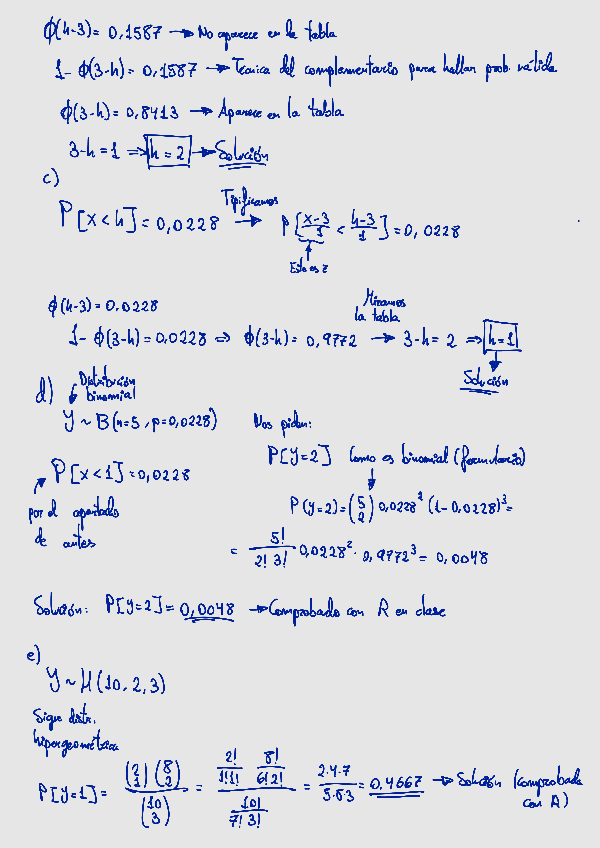 ϕ(h-3) = 0,1587 → No aparece en la tabla
1 - ϕ(3-h) = 0,1587 → Tecnica del complementario para hallar prob. válida
ϕ(3-h) = 0,8413 → Aparece en la tabla
3-h = 1 ⇒ h = 2 → Solución
c)
P[x < h] = 0,0228 Tipificamos → P[(x-3)/1 < (h-3)/1] = 0,0228
Esto es z
ϕ(h-3) = 0.0228
1 - ϕ(3-h) = 0,0228 ⇒ ϕ(3-h) = 0,9772 Miramos la tabla → 3-h = 2 ⇒ h = 1
Solución
d) Distribución binomial
Y ~ B(n=5, p=0,0228) Nos piden:
P[Y=2] Como es binomial (formulario)
P[x < 1] = 0,0228
por el apartado de antes
P(y=2) = (5 2) 0,0228² (1-0,0228)³ =
= 5!/(2! 3!) 0,0228² · 0,9772³ = 0,0048
Solución: P[y=2] = 0,0048 → Comprobado con R en clase
e)
Y ~ H(10, 2, 3)
Sigue distr. hipergeométrica
P[y=1] = (2 1)(8 2)/(10 3) = 2!/(1!1!) 8!/(6!2!) / 10!/(7! 3!) = 2·4·7/5·8·3 = 0,4667 → Solución (comprobada con R)